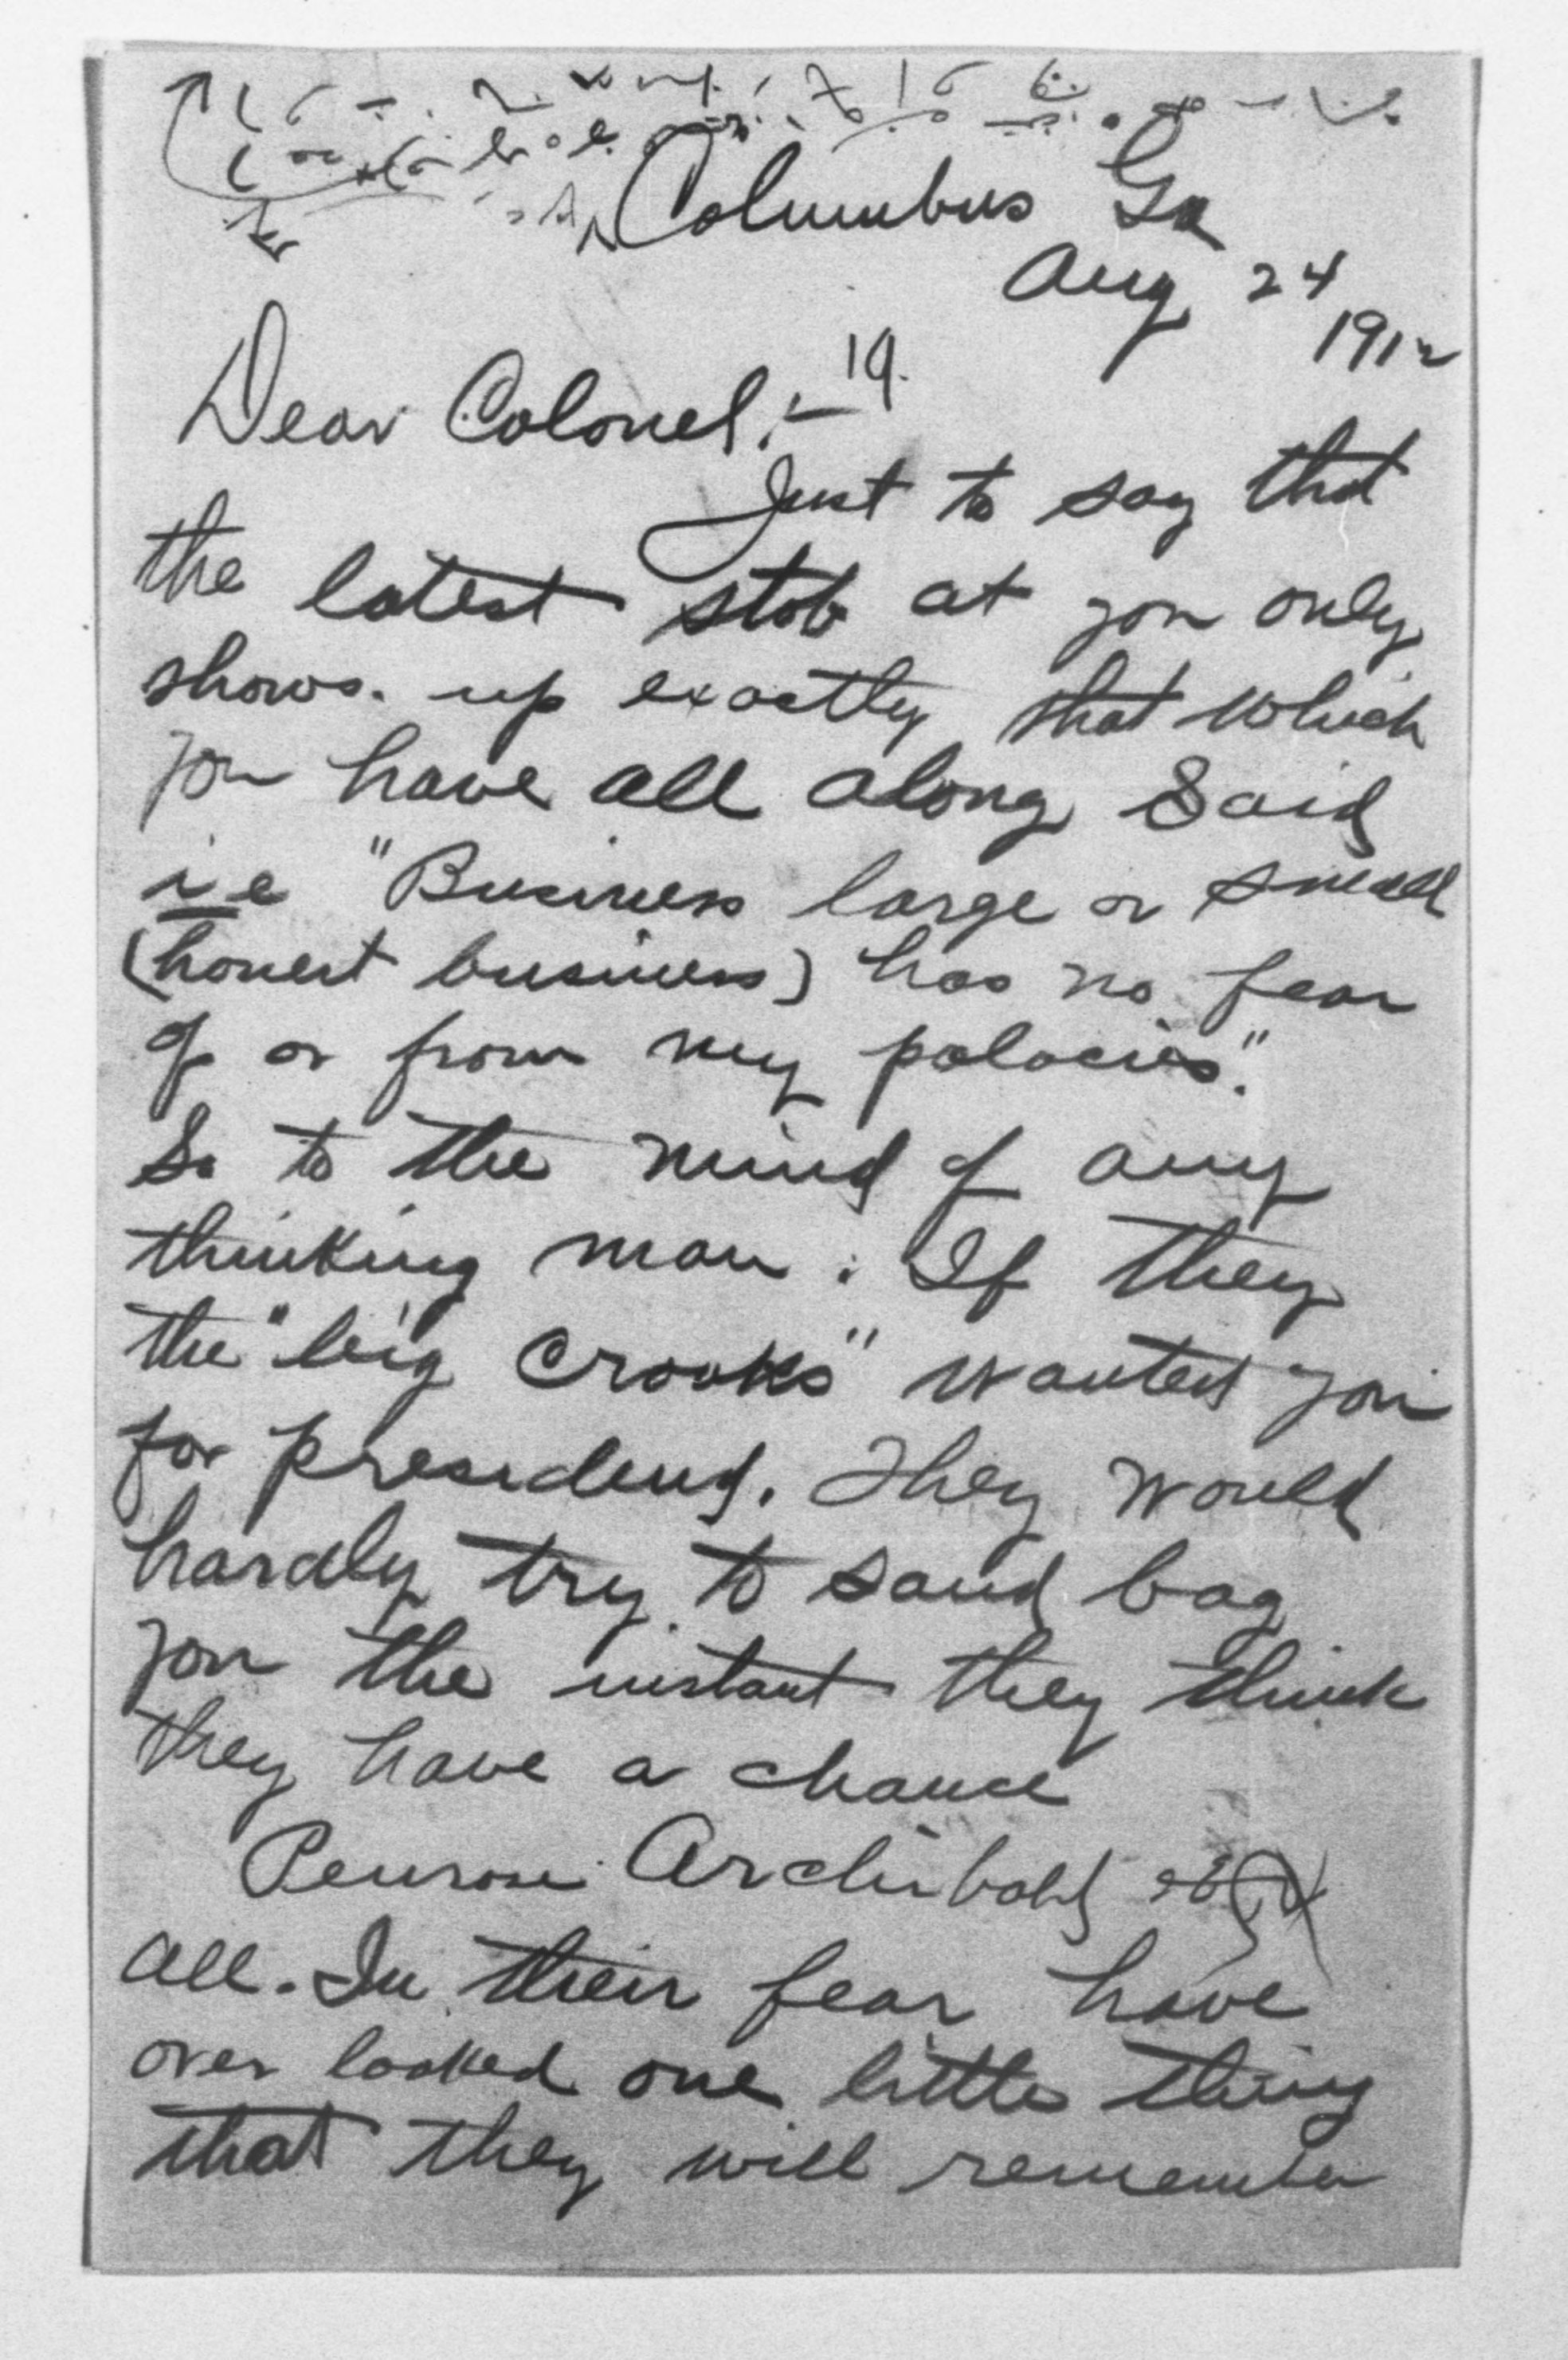 Columbus Ga
Aug 24
1912
Dear Colonel:— 19.
Just to say that
the latest stab at you only
shows. up exactly that which
you have all along Said
i e "Business large or small
(honest business) has no fear
of or from my polocies".
So to the mind of any
thinking man: If they
the "big Crooks" wanted you
for presidend. They would
hardly try to sand bag
you the instant they think
they have a chance
Penrose Archibald et
all. In their fear have
over looked one little thing
that they will remember